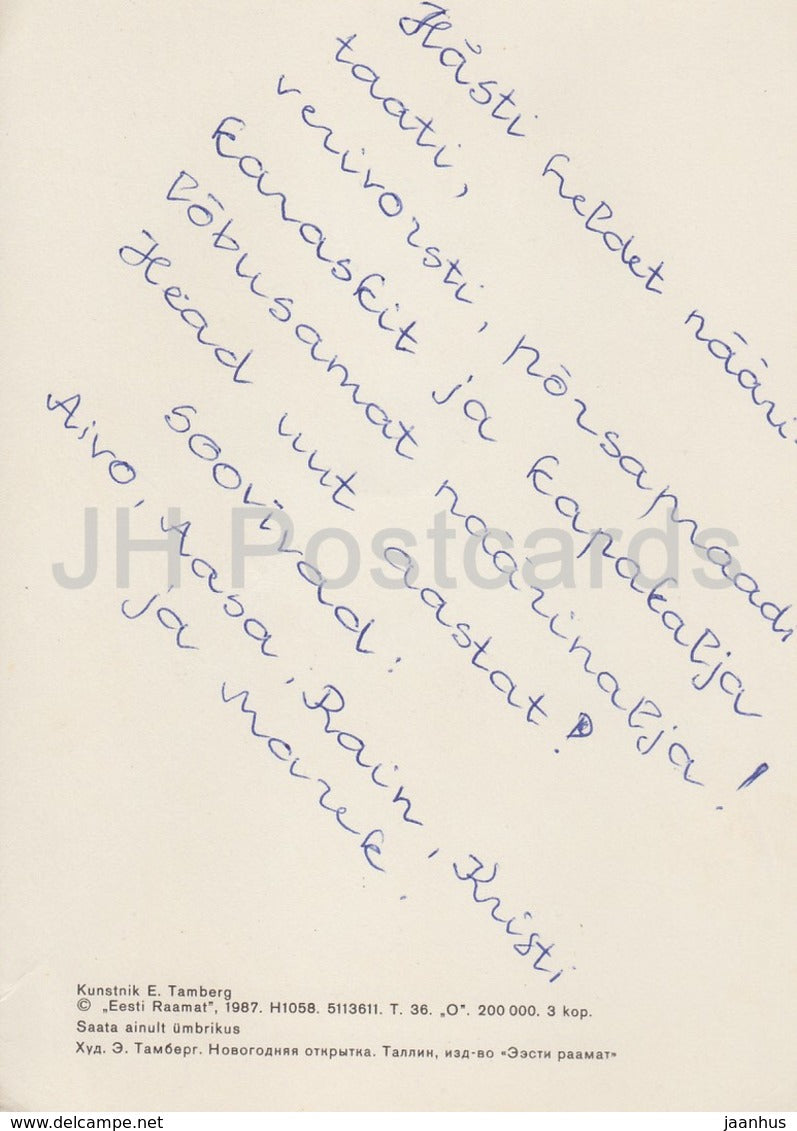 Hästi heldet nääri
taati,
verivorsti, põrsapraadi
karaskit ja kapakalja
lõbusamat näärinalja!
Head uut aastat!
soovivad:
Aivo, Aasa, Rain, Kristi
ja Marek.
JH Postcards
Kunstnik E. Tamberg
© „Eesti Raamat", 1987. H1058. 5113611. T. 36. „O". 200 000. 3 kop.
Saata ainult ümbrikus
Худ. Э. Тамберг. Новогодняя открытка. Таллин, изд-во «Ээсти раамат»
www.delcampe.net
jaanhus